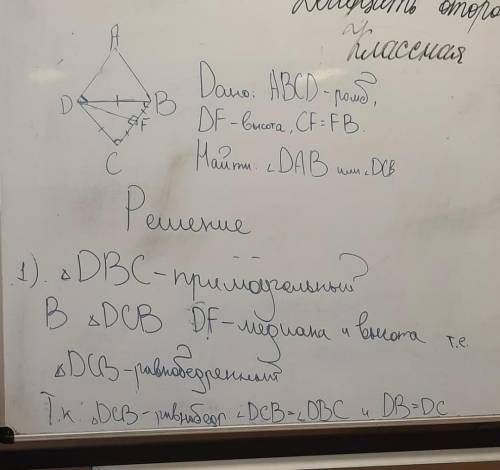 Доказать второ
Классная
A
D
B
F
C
Дано: ABCD-ромб,
DF-высота, CF=FB.
Найти: ∠DAB или ∠DCB
Решение
1). △DBC-прямоугольный?
В △DCB DF-медиана и высота т.е.
△DCB-равнобедренный
Т.к. △DCB-равнобедр. ∠DCB=∠DBC и DB=DC